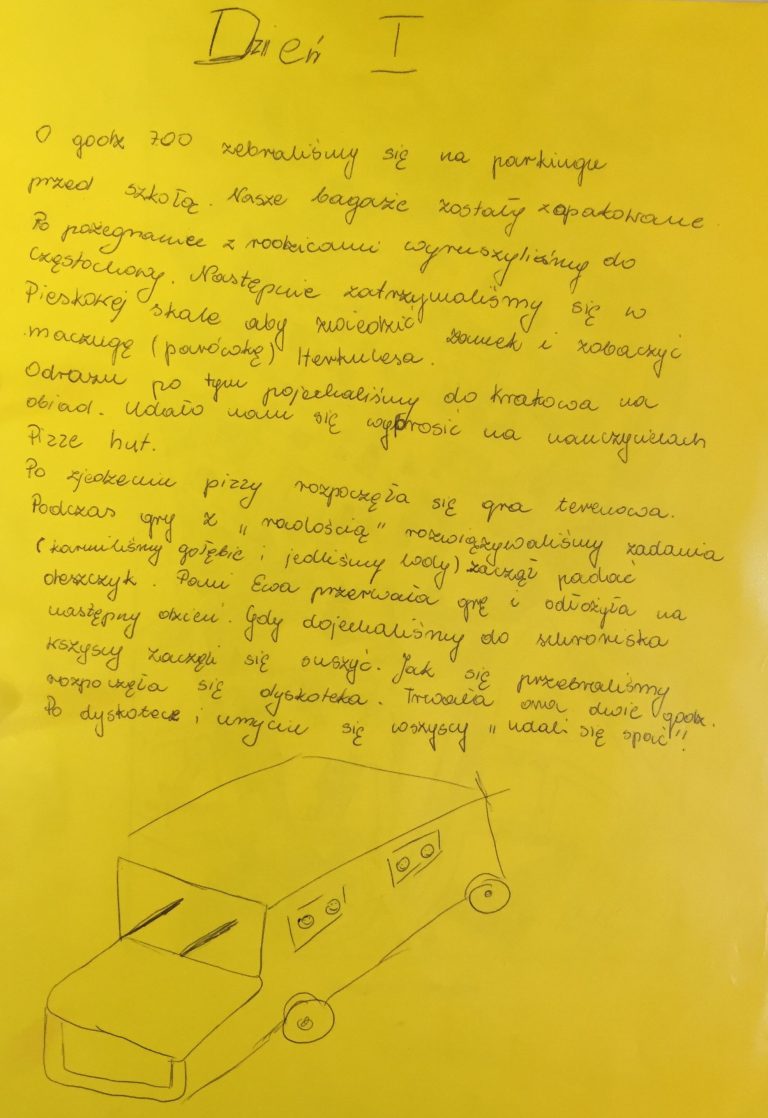 Dzień I
O godz 700 zebraliśmy się na parkingu
przed szkołą. Nasze bagaże zostały zapakowane
Po pożegnaniee z rodzicami wyruszyliśmy do
Częstochowy. Następnie zatrzymaliśmy się w
Pieskowej skale aby zwiedzić zamek i zobaczyć
maczugę (parówkę) Herkulesa.
Odrazu po tym pojechaliśmy do Krakowa na
obiad. Udało nam się wyprosić na nauczycielach
Pizze hut.
Po zjedzeniu pizzy rozpoczęła się gra terenowa.
Podczas gry z "radością" rozwiązywaliśmy zadania
(karmiliśmy gołębie i jedliśmy lody) zaczął padać
deszczyk. Pani Ewa przerwała grę i odłożyła na
następny dzień. Gdy dojechaliśmy do schroniska
wszyscy zaczęli się suszyć. Jak się przebraliśmy
rozpoczęła się dyskoteka. Trwała ona dwie godz.
Po dyskotece i umyciu się wszyscy "udali się spać"!